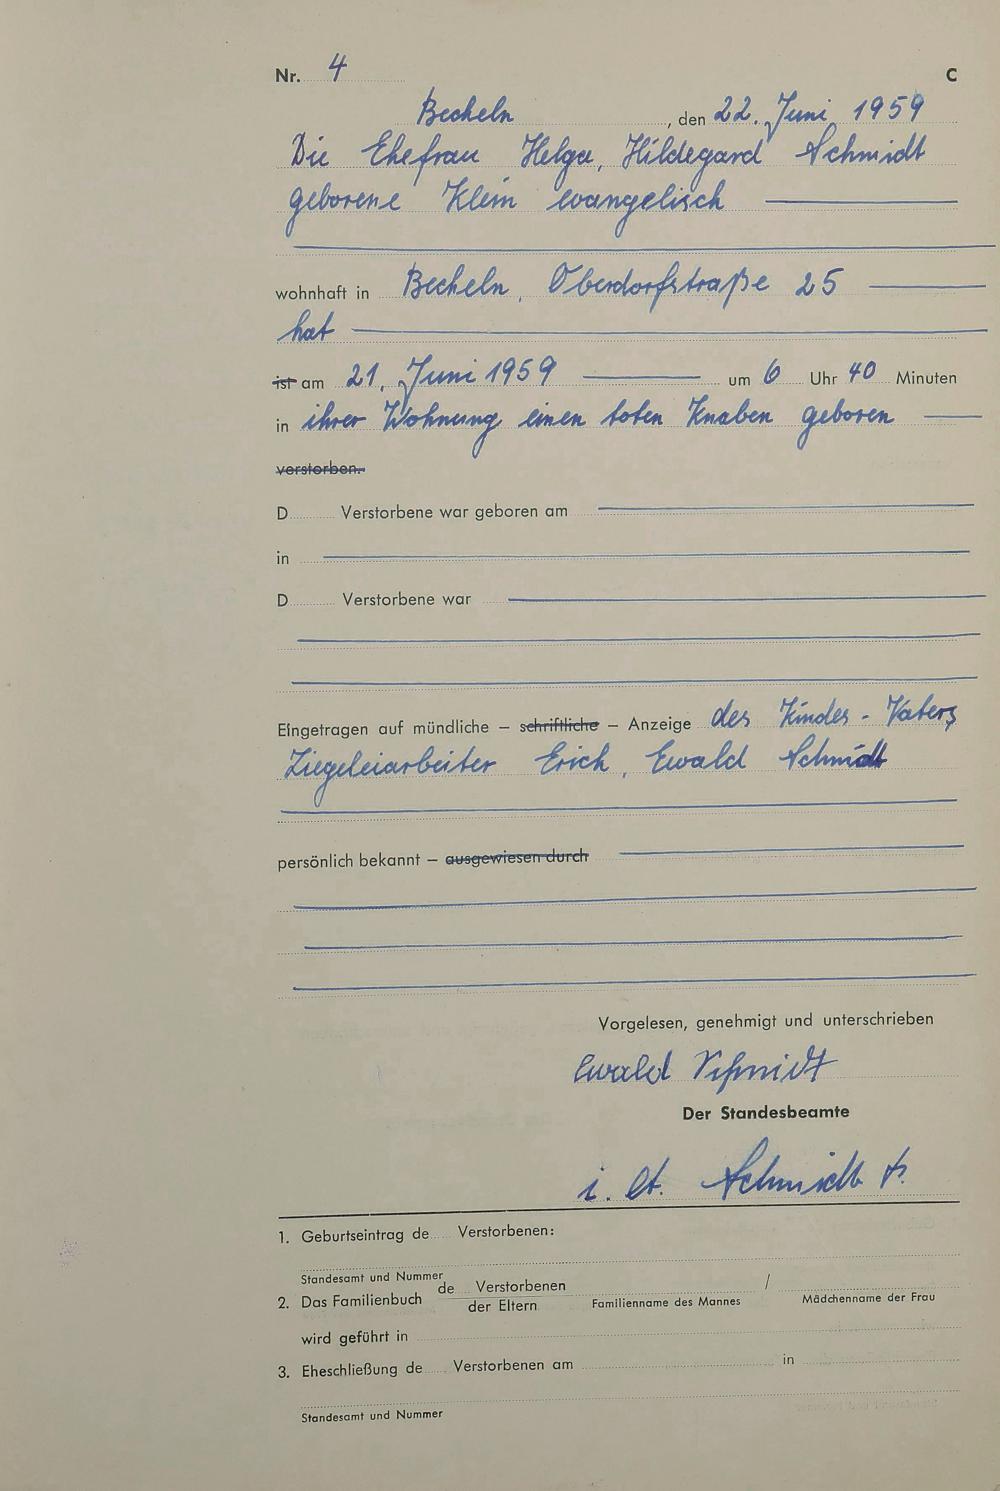 Nr. 4 C
Becheln, den 22. Juni 1959
Die Ehefrau Helga, Hildegard Schmidt
geborene Klein evangelisch
wohnhaft in Becheln, Oberdorfstraße 25
hat
ist am 21. Juni 1959 um 6 Uhr 40 Minuten
in ihrer Wohnung einen toten Knaben geboren
verstorben.
D Verstorbene war geboren am
in
D Verstorbene war
Eingetragen auf mündliche – schriftliche – Anzeige des Kindes - Vaters
Ziegeleiarbeiter Erich, Ewald Schmidt
persönlich bekannt – ausgewiesen durch
Vorgelesen, genehmigt und unterschrieben
Ewald Schmidt
Der Standesbeamte
Schmidt
1. Geburtseintrag de Verstorbenen:
Standesamt und Nummer
2. Das Familienbuch de Verstorbenen /
der Eltern Familienname des Mannes Mädchenname der Frau
wird geführt in
3. Eheschließung de Verstorbenen am in
Standesamt und Nummer